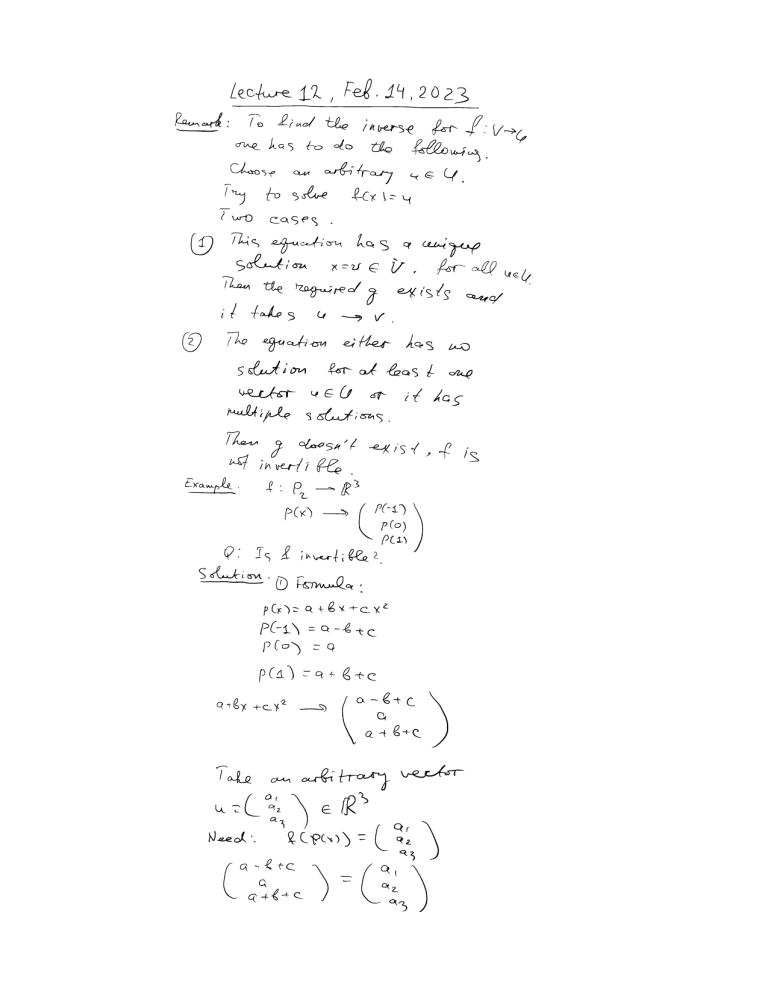 Lecture 12, Feb. 14, 2023
Remark: To find the inverse for f: V→U
one has to do the following.
Choose an arbitrary u ∈ U.
Try to solve f(x)=u
Two cases.
① This equation has a unique
solution x=v ∈ V. for all u∈U.
Then the required g exists and
it takes u → v.
② The equation either has no
solution for at least one
vector u∈U or it has
multiple solutions.
Then g doesn't exist, f is
not invertible.
Example. f: P₂ → ℝ³
p(x) → (p(-1)
p(0)
p(1))
Q: Is f invertible?
Solution. ① Formula:
p(x)=a+bx+cx²
p(-1)=a-b+c
p(0)=a
p(1)=a+b+c
a+bx+cx² → (a-b+c
a
a+b+c)
Take an arbitrary vector
u=(a₁ a₂ a₃) ∈ ℝ³
Need: f(p(x))=(a₁ a₂ a₃)
(a-b+c
a
a+b+c) = (a₁ a₂ a₃)